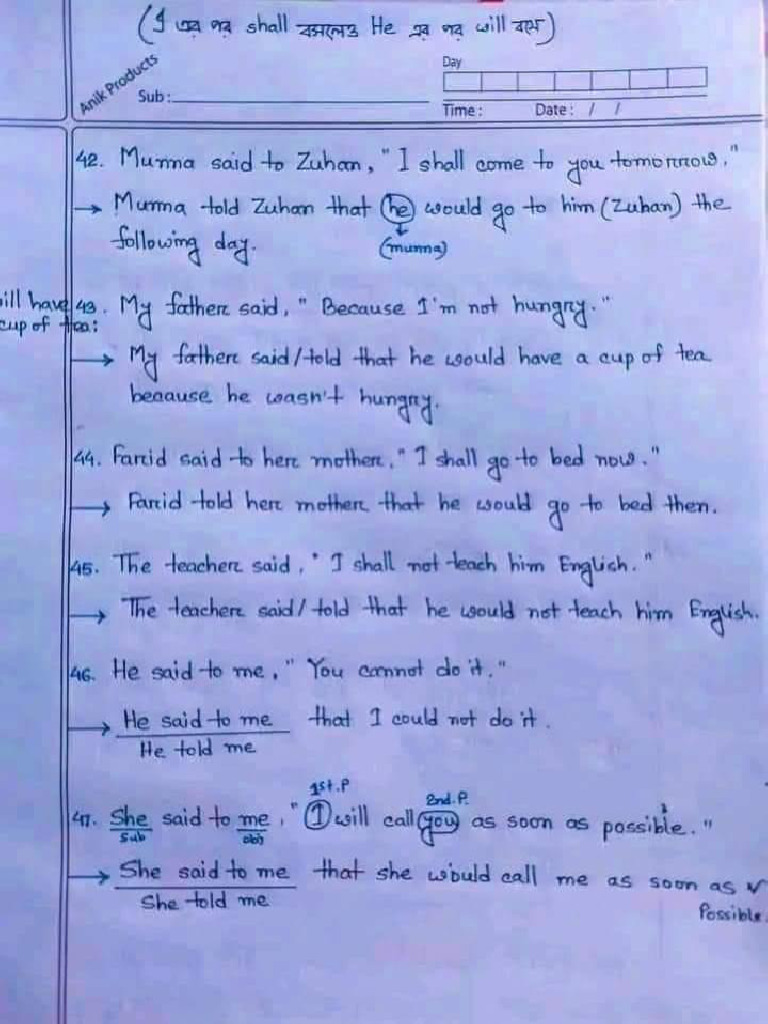 (I এর পর shall বসলেও He এর পর will বসে)
Anik Products
Day
Sub:
Time: Date: / /
42. Munna said to Zuhan, "I shall come to you tomorrow."
→ Munna told Zuhan that he would go to him (Zuhan) the
following day. (munna)
ill have
cup of tea:
43. My father said, "Because I'm not hungry."
→ My father said/told that he would have a cup of tea
because he wasn't hungry.
44. Farid said to her mother, "I shall go to bed now."
→ Farid told her mother that he would go to bed then.
45. The teacher said, "I shall not teach him English."
→ The teacher said/told that he would not teach him English.
46. He said to me, "You cannot do it."
→ He said to me that I could not do it.
He told me
1st.P 2nd.P.
47. She said to me, "I will call you as soon as possible."
Sub obj
→ She said to me that she would call me as soon as
She told me Possible.